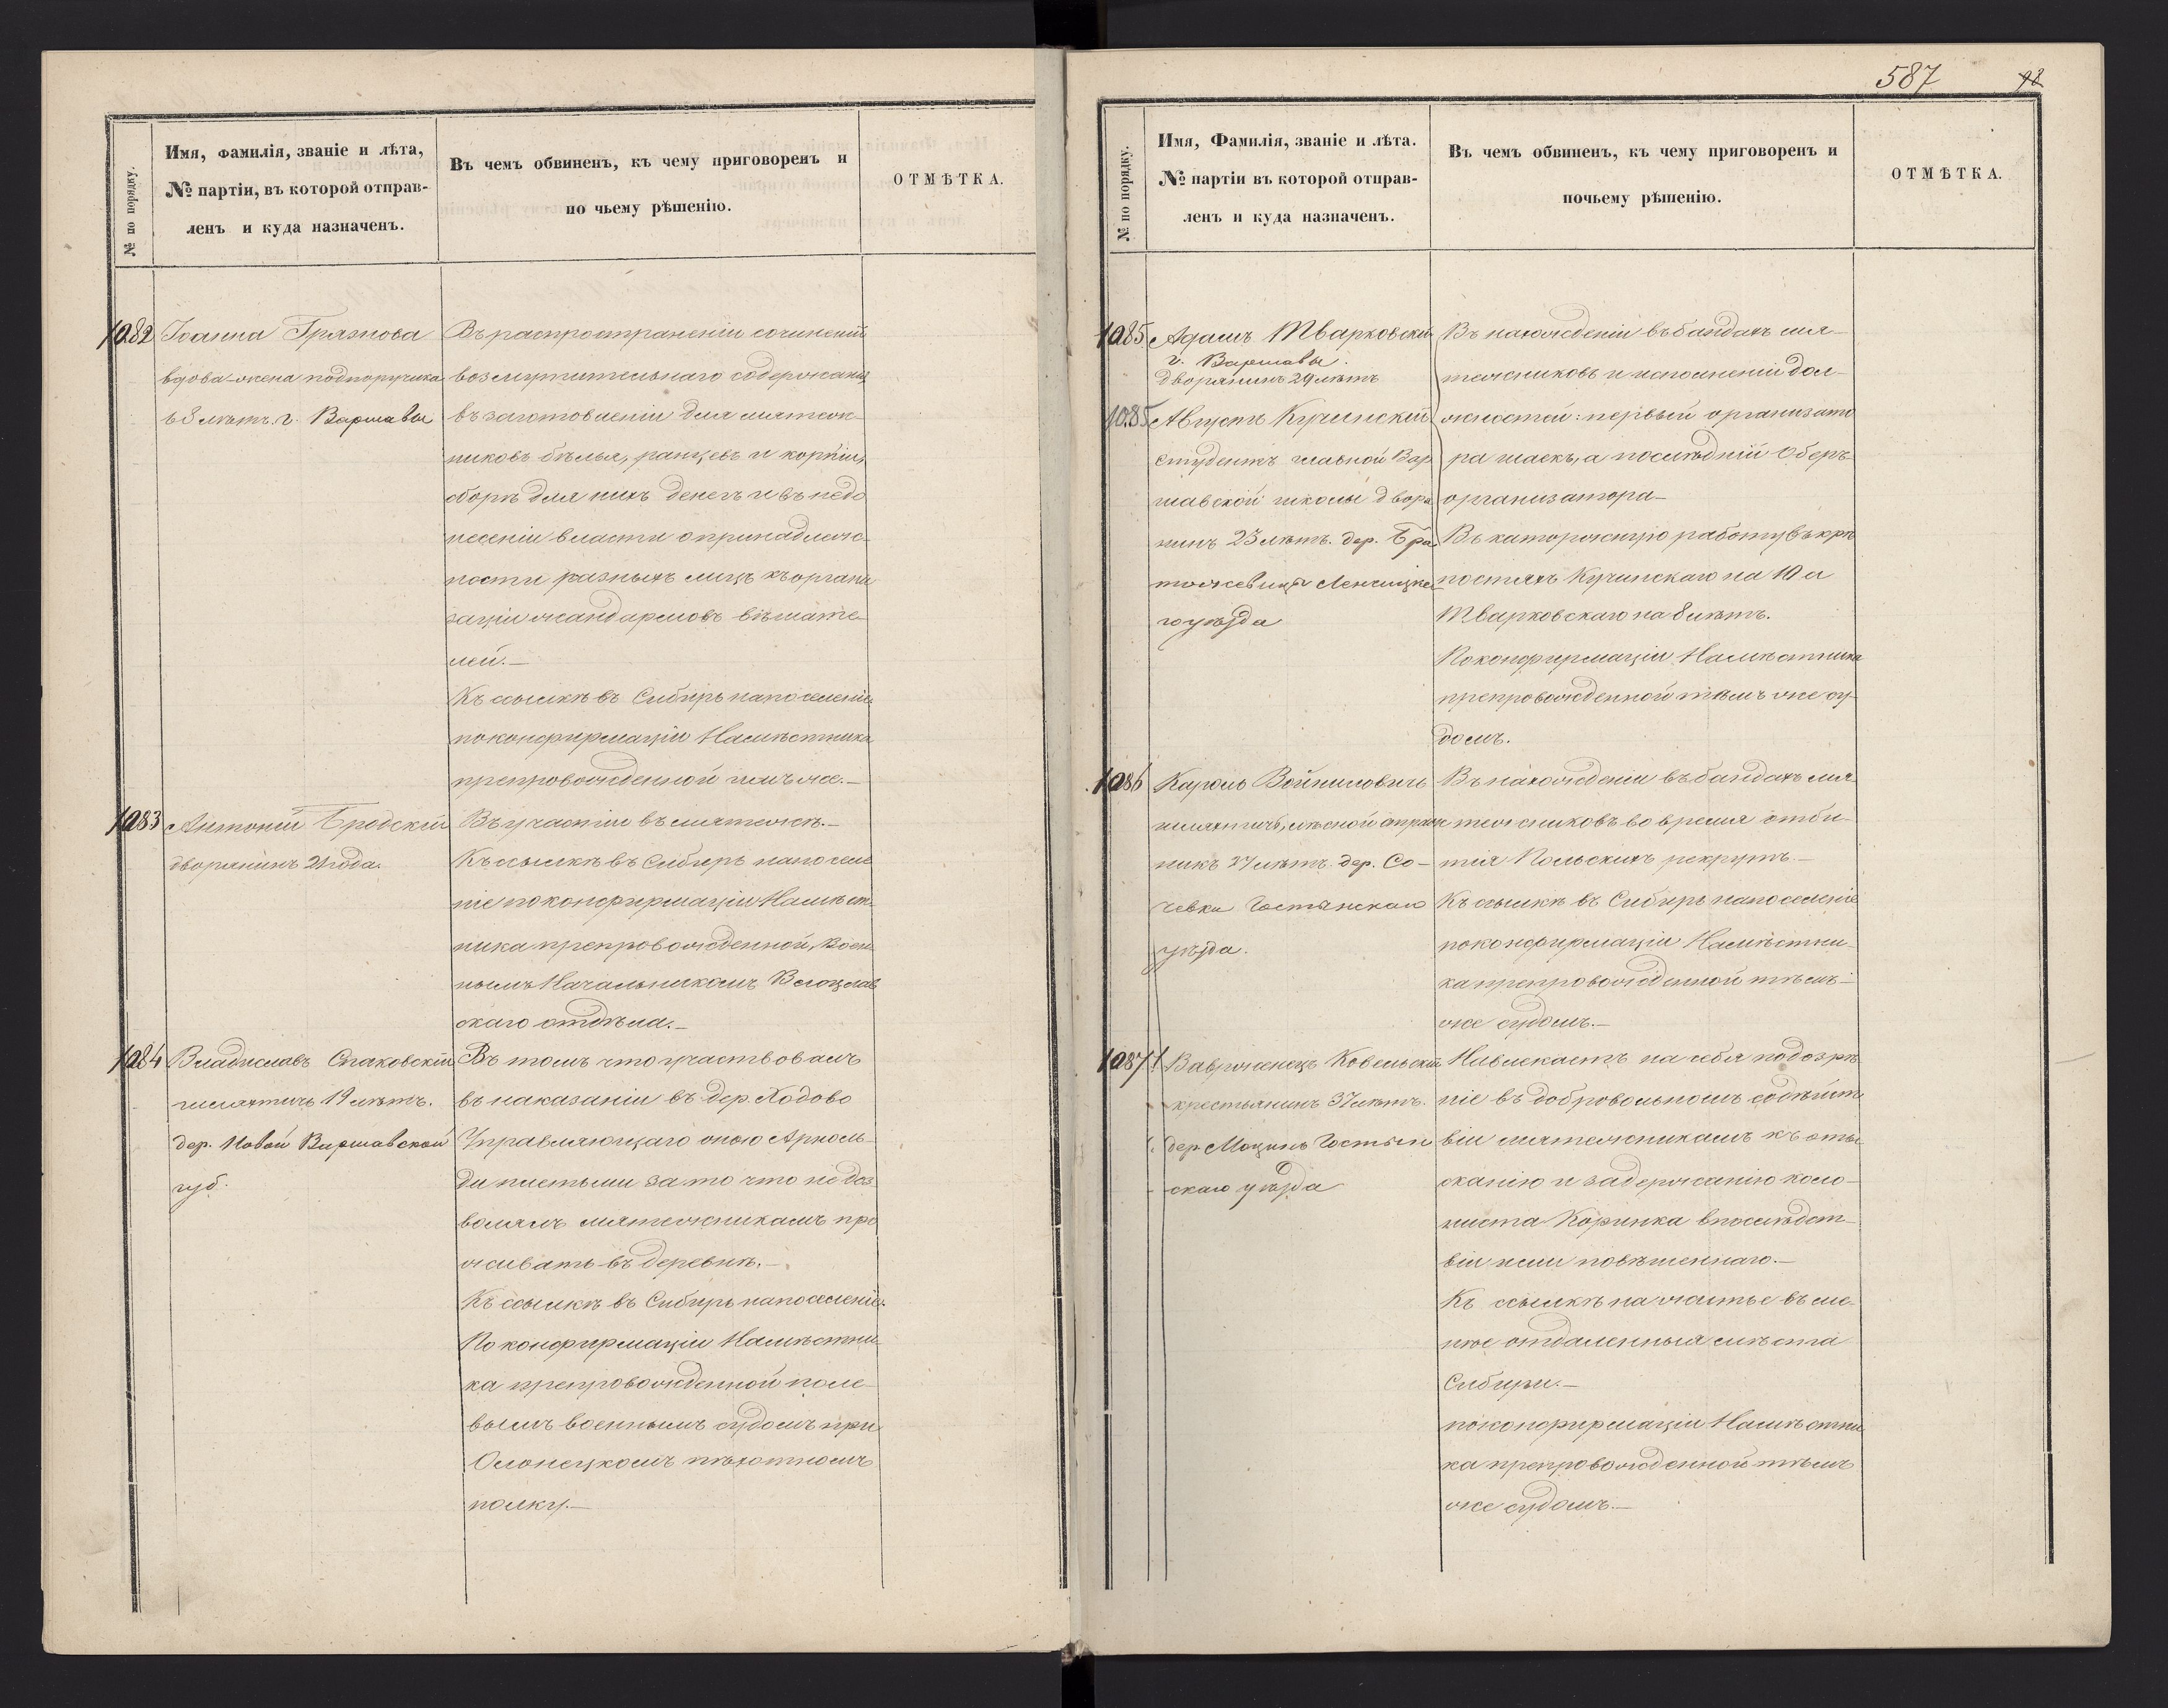 № по порядку.
Имя, фамилія, званіе и лѣта,
№ партіи, въ которой отправ-
ленъ и куда назначенъ.
Въ чемъ обвиненъ, къ чему приговоренъ и
по чьему рѣшенію.
ОТМѢТКА.
1082
Іоанна Грязнова
вдова жена подпоручика
лѣтъ. г. Варшавы
Въ распространеніи сочиненій
возмутительнаго содержанія,
въ заготовленіи для мятеж-
никовъ бѣлья, ранцевъ и корпіи,
сборѣ для нихъ денегъ и въ недо
несеніи власти о принадлеж-
ности разныхъ лицъ къ органи
заціи жандармовъ вѣшате-
лей.—
Къ ссылкѣ въ Сибирь на поселеніе
по конфирмаціи Намѣстника
препровожденной имъ же.—
1083
Антоній Бродскій
дворянинъ 21 года.
Въ участіи въ мятежѣ.—
Къ ссылкѣ въ Сибирь на поселе
ніе по конфирмаціи Намѣст-
ника препровожденной, Воен-
нымъ Начальникомъ Влоцлав
скаго отдѣла.—
1084
Владиславъ
шляхтичъ 19 лѣтъ.
дер. Новой Варшавской
губ.
Въ томъ что участвовалъ
въ наказаніи въ дер. Ходово
Управляющаго оною Арноль-
ди плетьми за то что не доз
волялъ мятежникамъ про
живать въ деревнѣ.—
Къ ссылкѣ въ Сибирь на поселеніе.
По конфирмаціи Намѣстни-
ка препровожденной поле-
вымъ военнымъ судомъ при
Олонецкомъ пѣхотномъ
полку.—
587
№ по порядку.
Имя, Фамилія, званіе и лѣта.
№ партіи въ которой отправ-
ленъ и куда назначенъ.
Въ чемъ обвиненъ, къ чему приговоренъ и
почьему рѣшенію.
ОТМѢТКА.
1085
Адамъ Тварковскій
г. Варшавы.
дворянинъ 29 лѣтъ
1085
Августъ Кучинскій
студентъ главной Вар
шавской школы дворя
нинъ 23 лѣтъ. дер.
Ленчицка-
го уѣзда
Въ нахожденіи въ бандахъ мя-
тежниковъ и исполненіи дол-
жностей: первый организато
ра шаекъ, а послѣдній Оберъ-
организатора—
Въ каторжную работу въ крѣ
постяхъ Кучинскаго на 10 а
Тварковскаго на 8 лѣтъ.
По конфирмаціи Намѣстника
препровожденной тѣмъ же су-
домъ.
1086
Кароль Войниловичъ
шляхтичъ, лѣсной
никъ 27 лѣтъ. дер. Со-
чевки Гостынскаго
уѣзда.
Въ нахожденіи въ бандахъ мя-
тежниковъ во время отби-
тія Польскихъ рекрутъ.—
Къ ссылкѣ въ Сибирь на поселеніе
по конфирмаціи Намѣстни-
ка препровожденной тѣмъ-
же судомъ.—
1087
Вавржинецъ Ковельскій
крестьянинъ 37 лѣтъ.
дер. Гостын
скаго уѣзда
Навлекаетъ на себя подозрѣ-
ніе въ добровольномъ содѣйст
віи мятежникамъ къ оты-
сканію и задержанію коло-
ниста Коринка впослѣдст-
віи ими повѣшеннаго.—
Къ ссылкѣ на житье въ ме-
нѣе отдаленныя мѣста
Сибири.—
по конфирмаціи Намѣстни
ка препровожденной тѣмъ
же судомъ.—